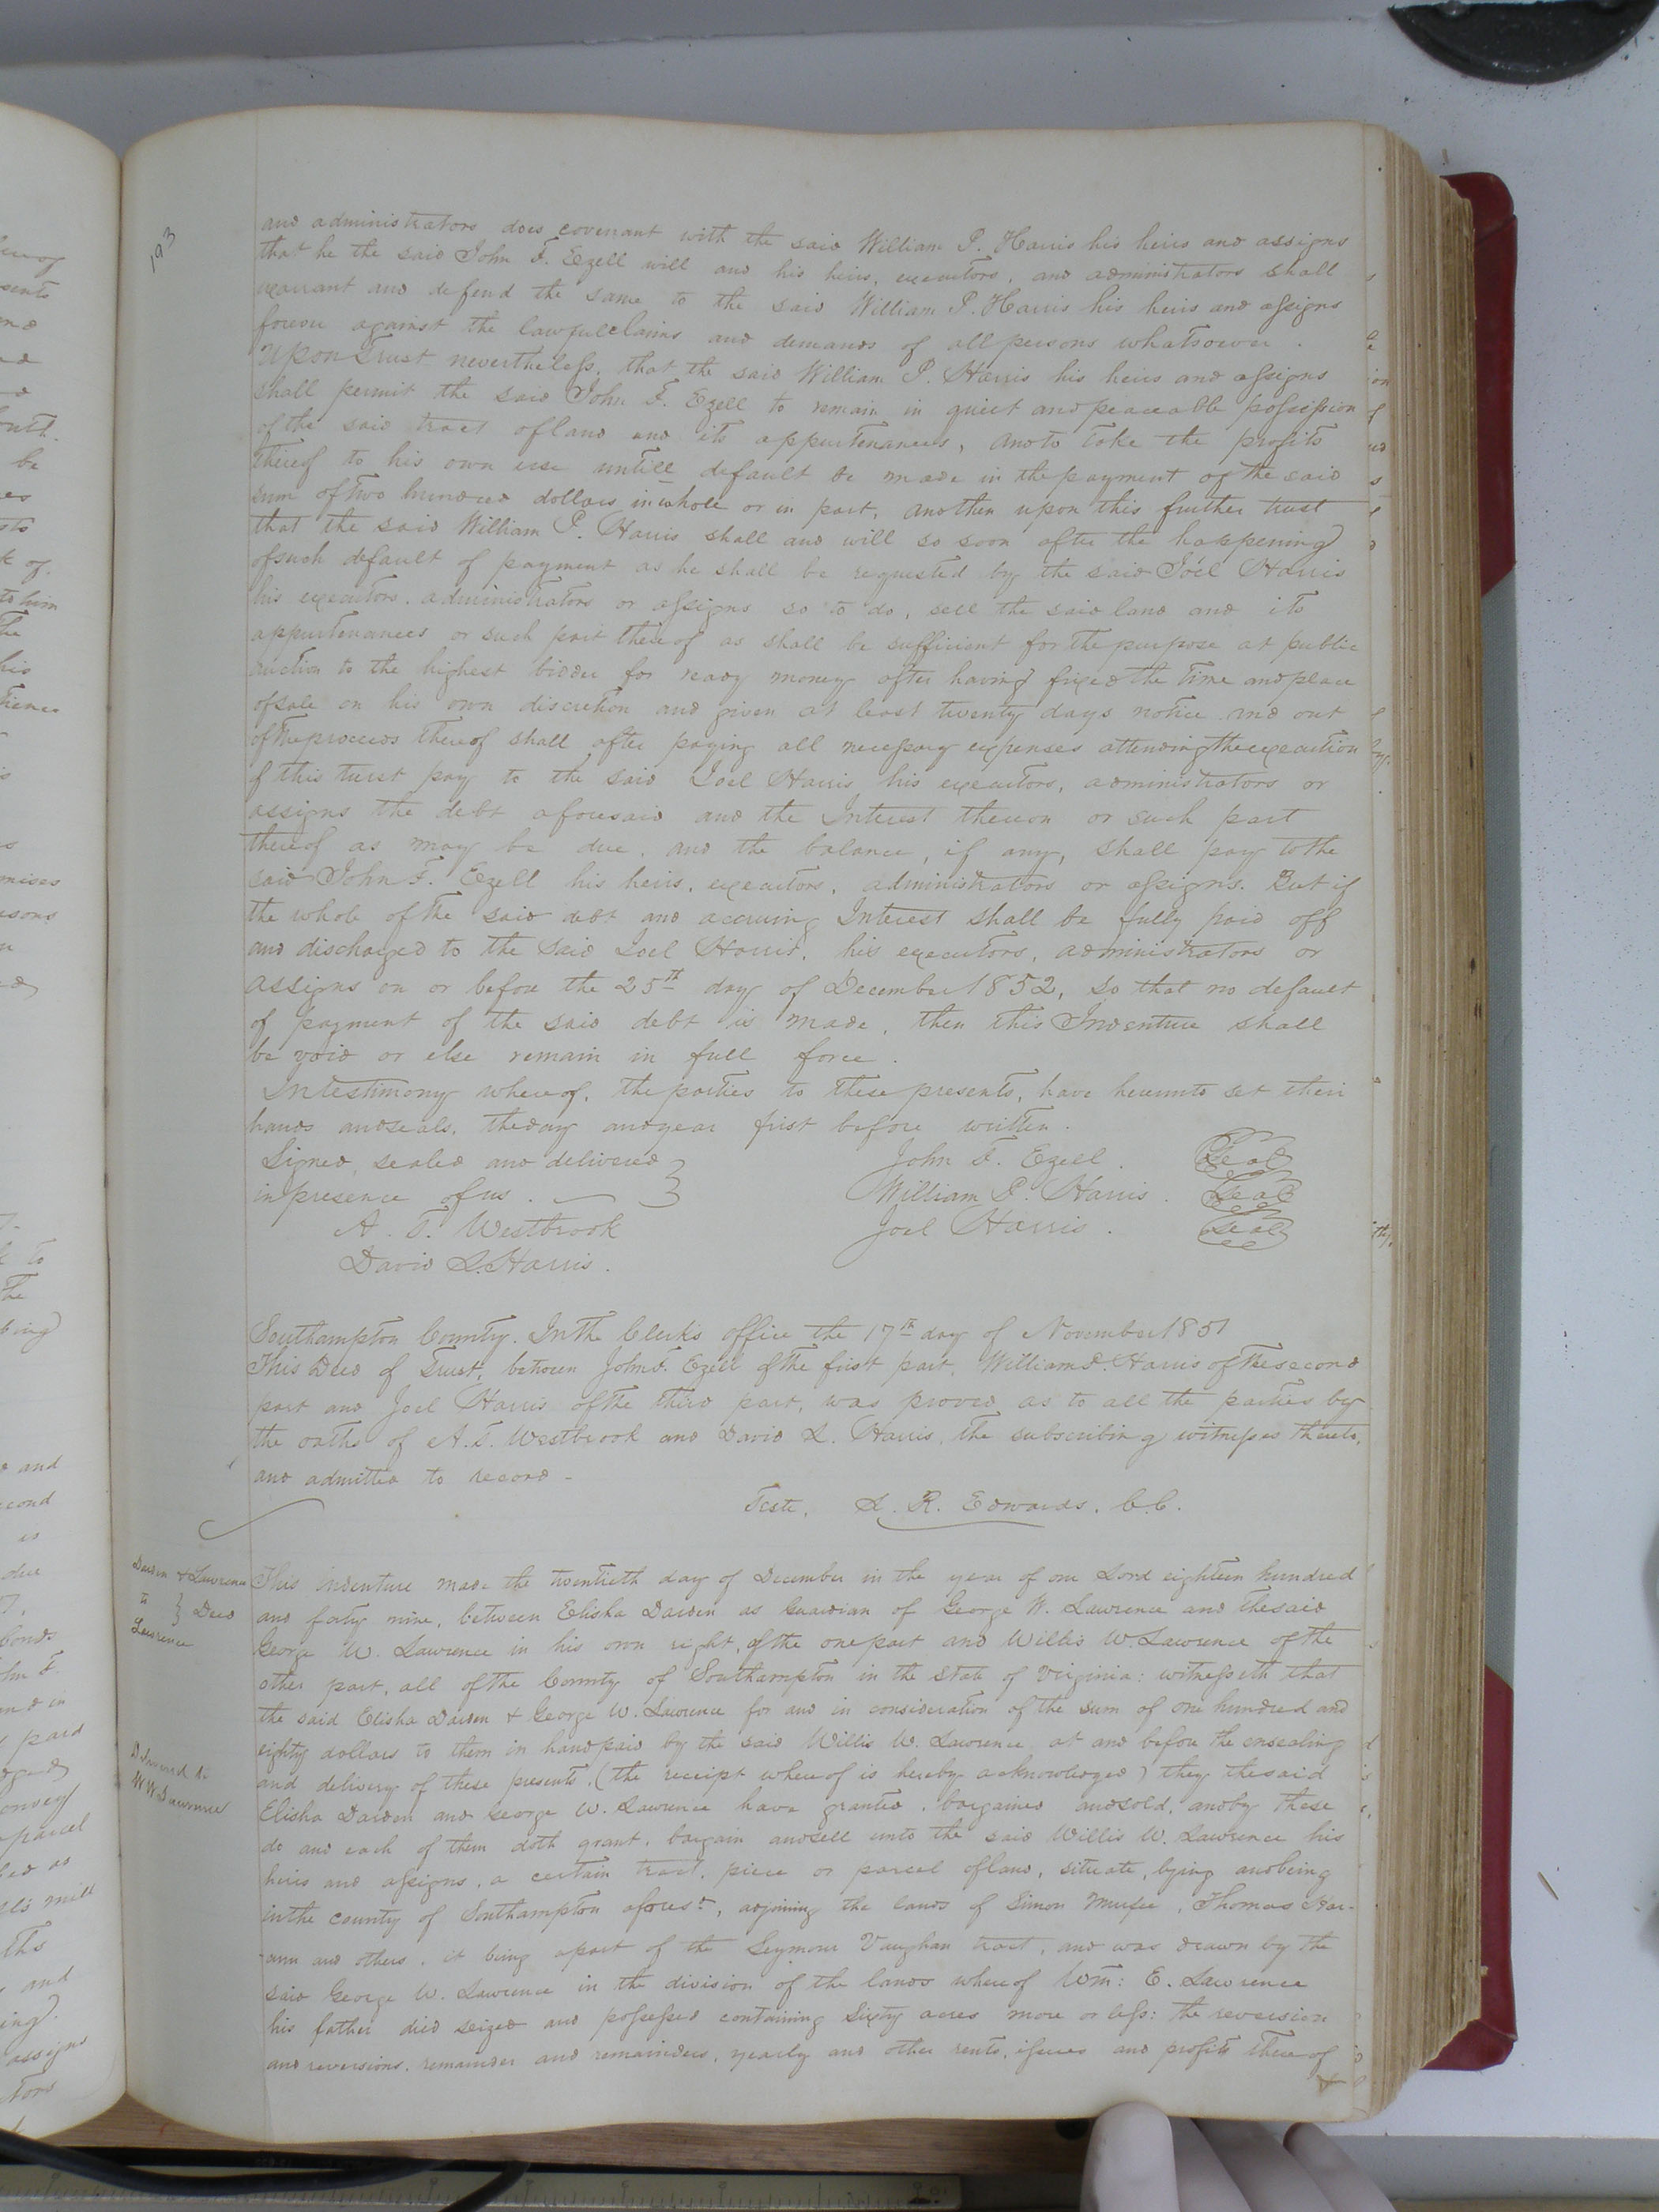 193
and administrators does covenant with the said William P. Harris his heirs and assigns
that he the said John F. Ezell will and his heirs, executors, and administrators shall
warrant and defend the same to the said William P. Harris his heirs and assigns
forever against the lawfull claims and demands of all persons whatsoever.
Upon Trust nevertheless, that the said William P. Harris his heirs and assigns
shall permit the said John F. Ezell to remain in quiet and peaceable possession
of the said tract of land and its appurtenances, and to take the profits
thereof to his own use untill default be made in the payment of the said
sum of two hundred dollars in whole or in part, and then upon this further trust
that the said William P. Harris shall and will so soon after the happening
of such default of payment as he shall be requested by the said Joel Harris
his executors, administrators or assigns so to do, sell the said land and its
appurtenances or such part thereof as shall be sufficient for the purpose at public
auction to the highest bidder for ready money after having fixed the time and place
of sale on his own discretion and given at least twenty days notice and out
of the proceeds thereof shall after paying all necessary expenses attending the execution
of this trust pay to the said Joel Harris his executors, administrators or
assigns the debt aforesaid and the Interest thereon or such part
thereof as may be due, and the balance, if any, shall pay to the
said John F. Ezell his heirs, executors, administrators or assigns. But if
the whole of the said debt and accruing Interest shall be fully paid off
and discharged to the said Joel Harris, his executors, administrators or
assigns on or before the 25th day of December 1852, so that no default
of payment of the said debt is made, then this Indenture shall
be void or else remain in full force.
In testimony whereof, the parties to these presents, have hereunto set their
hands and seals, the day and year first before written.
Signed, sealed and delivered } John F. Ezell. Seal
in presence of us. } William P. Harris. Seal
A. T. Westbrook Joel Harris. Seal
David L. Harris.
Southampton County. In the Clerk's office the 17th day of November 1851
This Deed of Trust, between John F. Ezell of the first part, William P. Harris of the second
part and Joel Harris of the third part, was proved as to all the parties by
the oaths of A. T. Westbrook and David L. Harris, the subscribing witnesses thereto,
and admitted to record -
Teste, L. R. Edwards, C.C.
Darden & Lawrence
to } Deed
Lawrence
This indenture made the twentieth day of December in the year of our Lord eighteen hundred
and forty nine, between Elisha Darden as Guardian of George W. Lawrence and the said
George W. Lawrence in his own right, of the one part and Willis W. Lawrence of the
other part, all of the County of Southampton in the State of Virginia: witnesseth that
the said Elisha Darden & George W. Lawrence for and in consideration of the sum of one hundred and
eighty dollars to them in hand paid by the said Willis W. Lawrence at and before the ensealing
and delivery of these presents, (the receipt whereof is hereby acknowledged) they the said
Delivered to
W W Lawrence
Elisha Darden and George W. Lawrence have granted, bargained and sold, and by these
do and each of them doth grant, bargain and sell unto the said Willis W. Lawrence his
heirs and assigns, a certain tract, piece or parcel of land, situate, lying and being
in the county of Southampton afores.d, adjoining the lands of Simon Murfee, Thomas Har-
-ann and others, it being a part of the Seymour Vaughan tract, and was drawn by the
said George W. Lawrence in the division of the lands whereof Wm: E. Lawrence
his father died seized and possessed containing Sixty acres more or less: the reversion
and reversions, remainder and remainders, yearly and other rents, issues and profits thereof
&